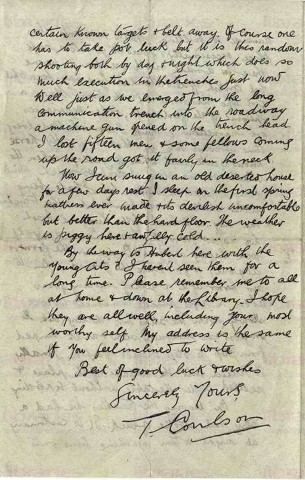 certain known targets & belt away. Of course one
has to take pot luck but it is this random
shooting both by day & night which does so
much execution in the trenches. Just now
Well just as we emerged from the long
communication trench into the roadway
a machine gun opened on the trench head
I lost fifteen men & some fellows coming
up the road got it fairly in the neck
Now I am snug in an old deserted house
for a few days rest. I sleep on the first spring
mattress ever made & its devilish uncomfortable
but better than the hard floor. The weather
is foggy here & awfully cold...
By the way is Hubert here with the
Young Cits? I havent seen them for a
long time. Please remember me to all
at home & down at the Library. I hope
they are all well, including your most
worthy self. My address is the same
if you feel inclined to write
Best of good luck & wishes
Sincerely Yours,
T Coulson